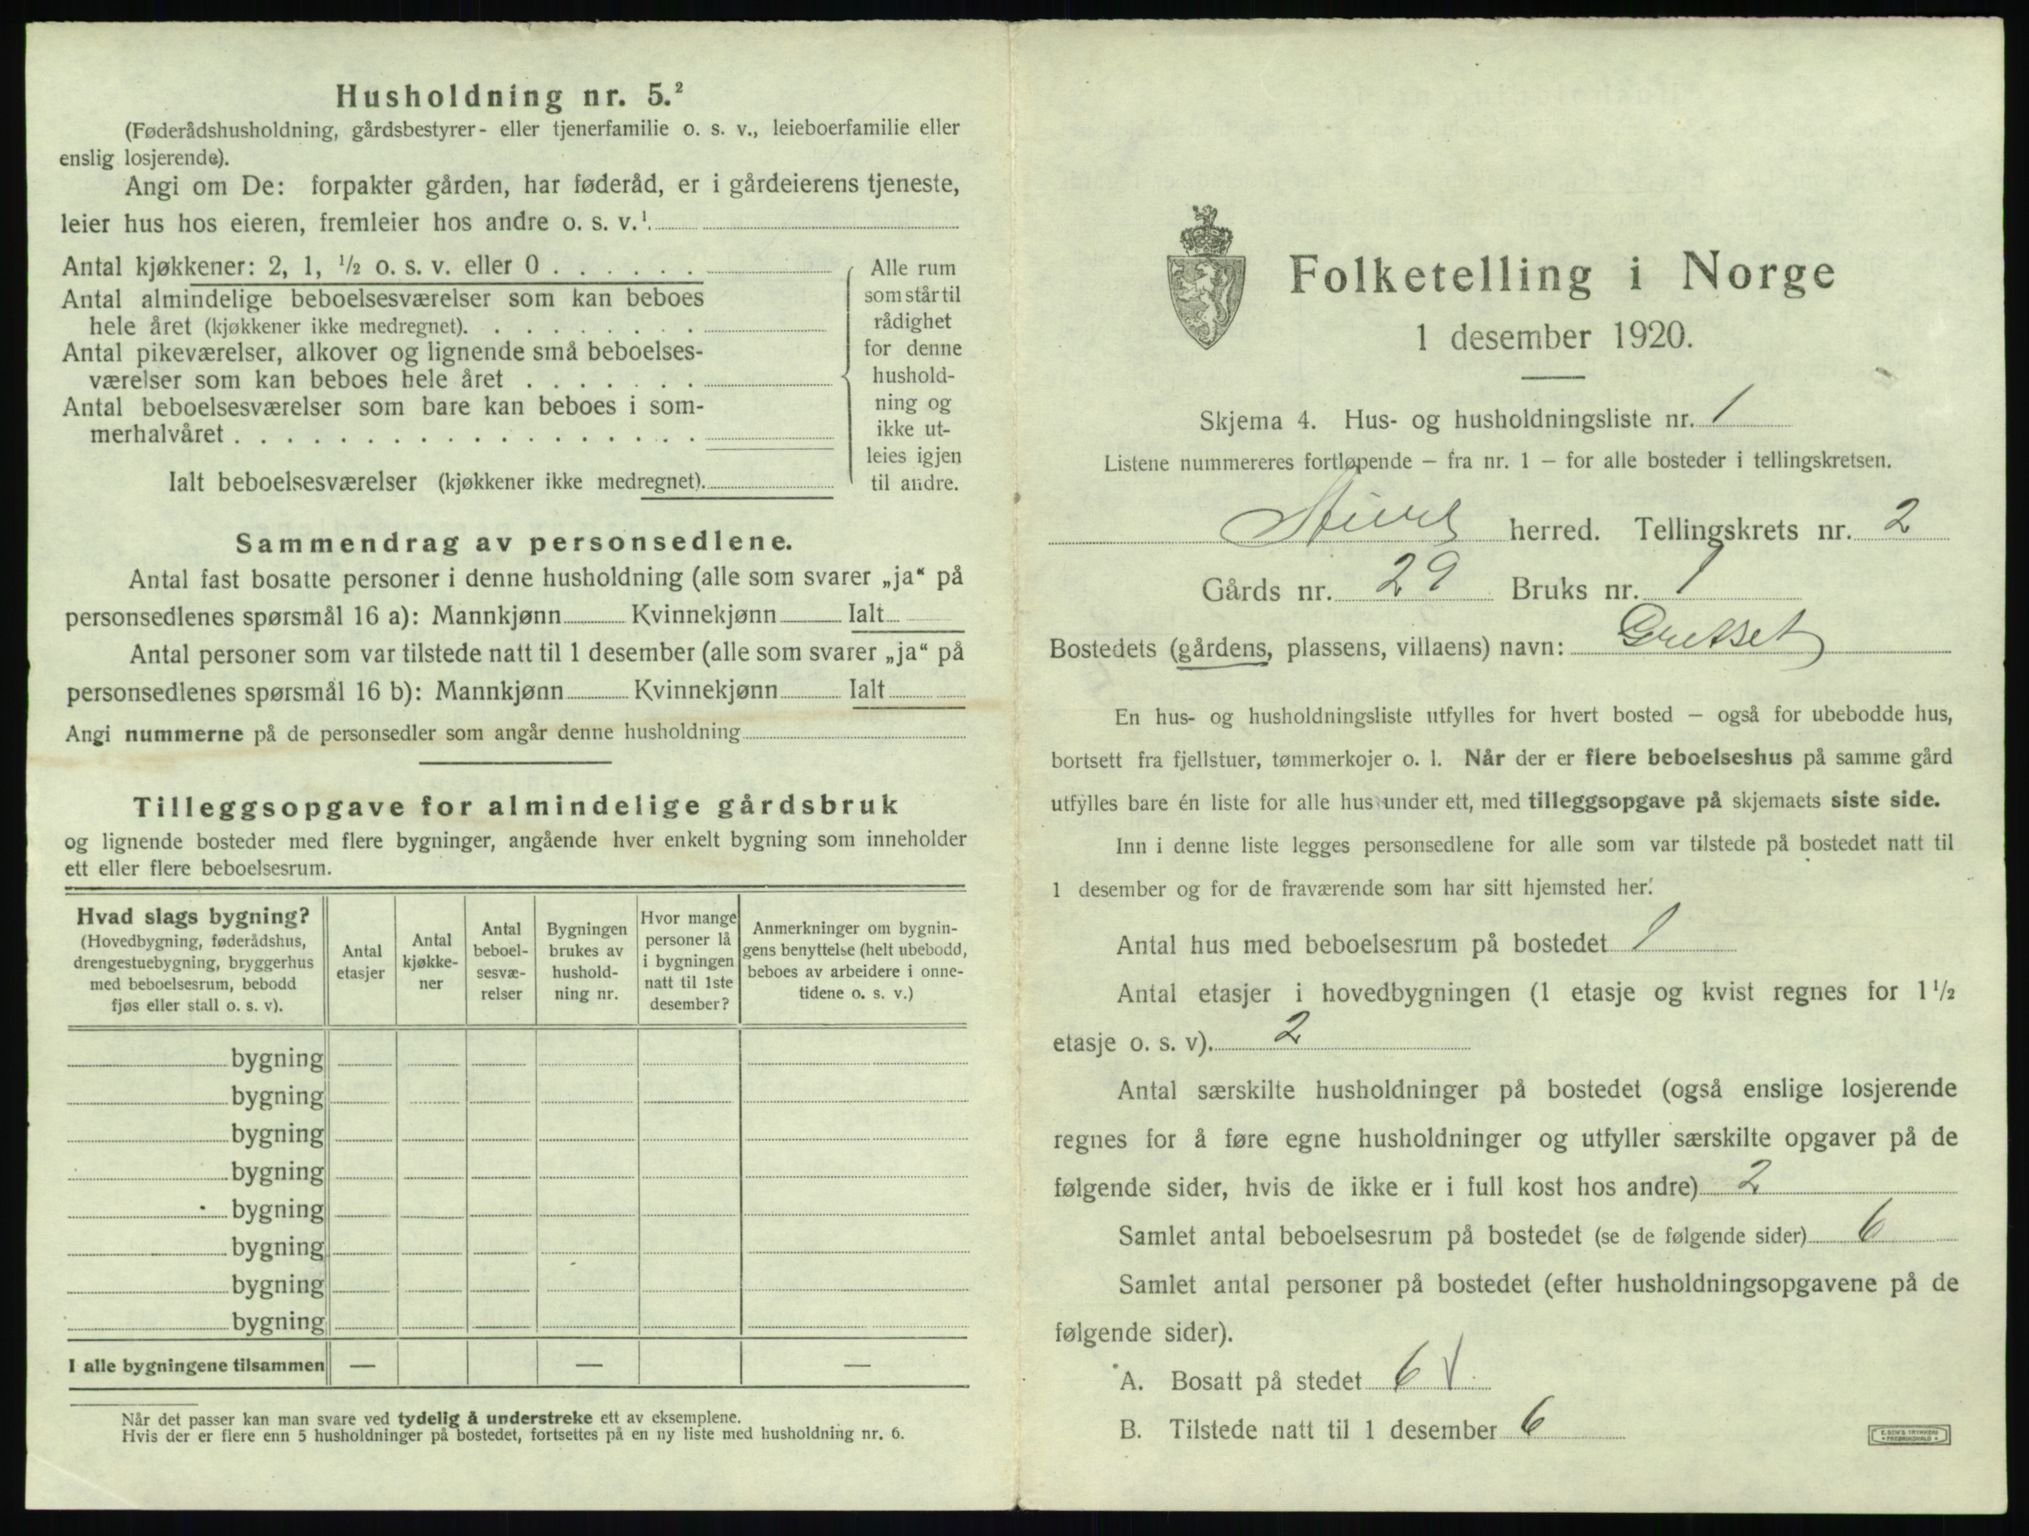 Husholdning nr. 5.²
(Føderådshusholdning, gårdsbestyrer- eller tjenerfamilie o. s. v., leieboerfamilie eller
enslig losjerende).
Angi om De: forpakter gården, har føderåd, er i gårdeierens tjeneste,
leier hus hos eieren, fremleier hos andre o. s. v.¹
Antal kjøkkener: 2, 1, ½ o. s. v. eller 0
Antal almindelige beboelsesværelser som kan beboes
hele året (kjøkkener ikke medregnet).
Antal pikeværelser, alkover og lignende små beboelses-
værelser som kan beboes hele året
Antal beboelsesværelser som bare kan beboes i som-
merhalvåret
Ialt beboelsesværelser (kjøkkener ikke medregnet).
Alle rum
som står til
rådighet
for denne
hushold-
ning og
ikke ut-
leies igjen
til andre.
Sammendrag av personsedlene.
Antal fast bosatte personer i denne husholdning (alle som svarer „ja“ på
personsedlenes spørsmål 16 a): Mannkjønn Kvinnekjønn Ialt
Antal personer som var tilstede natt til 1 desember (alle som svarer „ja“ på
personsedlenes spørsmål 16 b): Mannkjønn Kvinnekjønn Ialt
Angi nummerne på de personsedler som angår denne husholdning
Tilleggsopgave for almindelige gårdsbruk
og lignende bosteder med flere bygninger, angående hver enkelt bygning som inneholder
ett eller flere beboelsesrum.
Hvad slags bygning?
(Hovedbygning, føderådshus,
drengestuebygning, bryggerhus
med beboelsesrum, bebodd
fjøs eller stall o. s. v).
Antal
etasjer
Antal
kjøkke-
ner
Antal
beboel-
sesvæ-
relser
Bygningen
brukes av
hushold-
ning nr.
Hvor mange
personer lå
i bygningen
natt til 1ste
desember?
Anmerkninger om bygnin-
gens benyttelse (helt ubebodd,
beboes av arbeidere i onne-
tidene o. s. v.)
bygning
bygning
bygning
bygning
bygning
bygning
bygning
bygning
I alle bygningene tilsammen — — —
Når det passer kan man svare ved tydelig å understreke ett av eksemplene.
Hvis der er flere enn 5 husholdninger på bostedet, fortsettes på en ny liste med husholdning nr. 6.
Folketelling i Norge
1 desember 1920.
Skjema 4. Hus- og husholdningsliste nr. 1
Listene nummereres fortløpende – fra nr. 1 – for alle bosteder i tellingskretsen.
herred. Tellingskrets nr. 2
Gårds nr. 29 Bruks nr. 1
Bostedets (gårdens, plassens, villaens) navn:
En hus- og husholdningsliste utfylles for hvert bosted – også for ubebodde hus,
bortsett fra fjellstuer, tømmerkojer o. l. Når der er flere beboelseshus på samme gård
utfylles bare én liste for alle hus under ett, med tilleggsopgave på skjemaets siste side.
Inn i denne liste legges personsedlene for alle som var tilstede på bostedet natt til
1 desember og for de fraværende som har sitt hjemsted her.
Antal hus med beboelsesrum på bostedet 1
Antal etasjer i hovedbygningen (1 etasje og kvist regnes for 1½
etasje o. s. v). 2
Antal særskilte husholdninger på bostedet (også enslige losjerende
regnes for å føre egne husholdninger og utfyller særskilte opgaver på de
følgende sider, hvis de ikke er i full kost hos andre) 2
Samlet antal beboelsesrum på bostedet (se de følgende sider) 6
Samlet antal personer på bostedet (efter husholdningsopgavene på de
følgende sider).
A. Bosatt på stedet 6 √
B. Tilstede natt til 1 desember 6